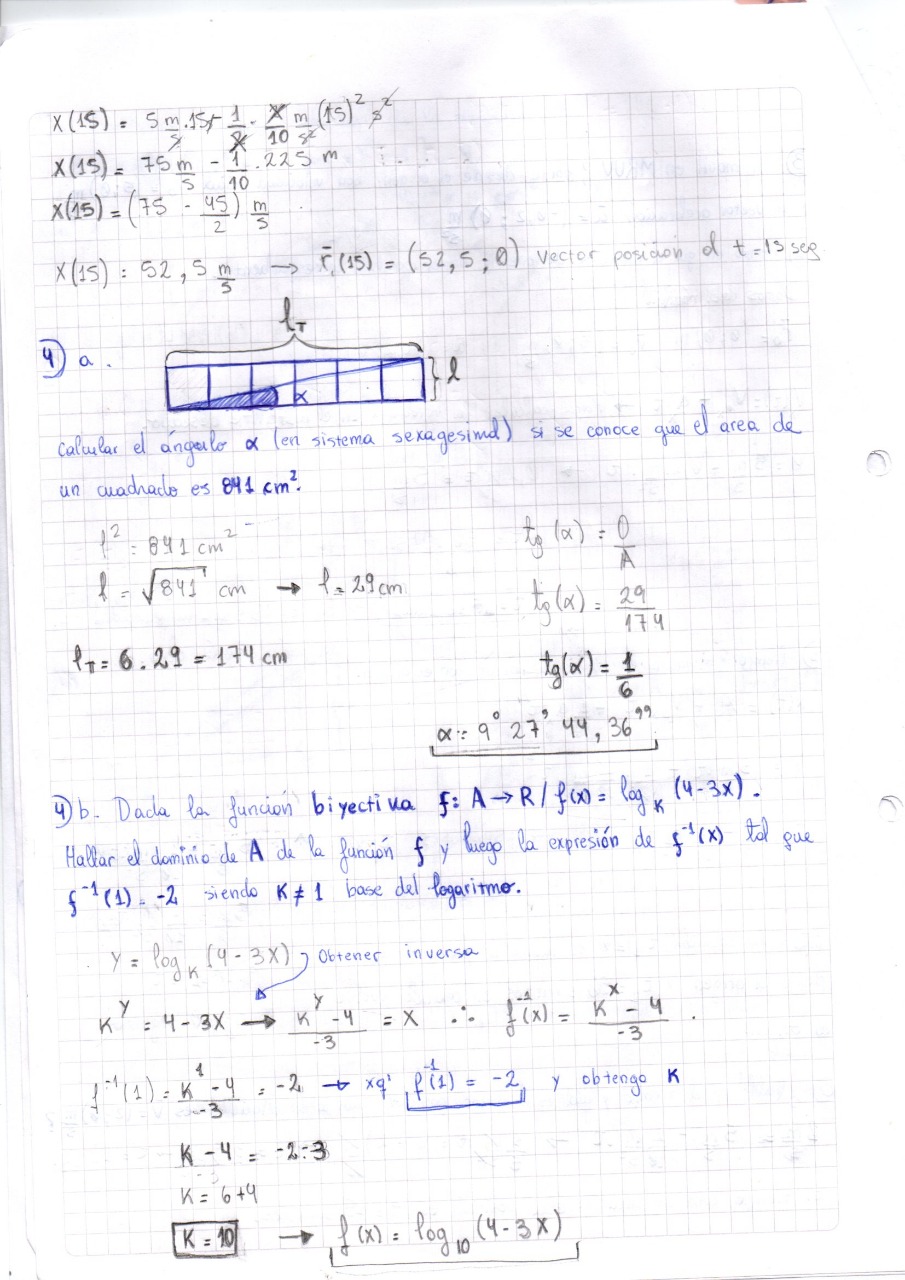 X(15) = 5 m/s . 15 s - 1/2 . 2/10 m/s² (15)² s²
X(15) = 75 m/s - 1/10 . 225 m
X(15) = (75 - 45/2) m/s
X(15) : 52,5 m/s → r̄₁(15) = (52,5 ; 0) vector posición d t=15 seg
l_T
4) a. α l
Calcular el ángulo α (en sistema sexagesimal) si se conoce que el area de
un cuadrado es 841 cm².
l² = 841 cm² tg (α) = O/A
l = √841 cm → l = 29 cm tg(α) = 29/174
l_T = 6 . 29 = 174 cm tg(α) = 1/6
α = 9° 27' 44,36''
4) b. Dada la función biyectiva f: A → R / f(x) = log_K (4-3x).
Hallar el dominio de A de la función f y luego la expresión de f⁻¹(x) tal que
f⁻¹(1) = -2 siendo K ≠ 1 base del logaritmo.
Y = log_K (4-3X) Obtener inversa
K^Y = 4-3X → (K^Y - 4)/-3 = X ∴ f⁻¹(x) = (K^X - 4)/-3 .
f⁻¹(1) = (K¹ - 4)/-3 = -2 → xq' f⁻¹(1) = -2 y obtengo K
K - 4 = -2.-3
K = 6+4
K = 10 → f(x) = log₁₀ (4-3X)